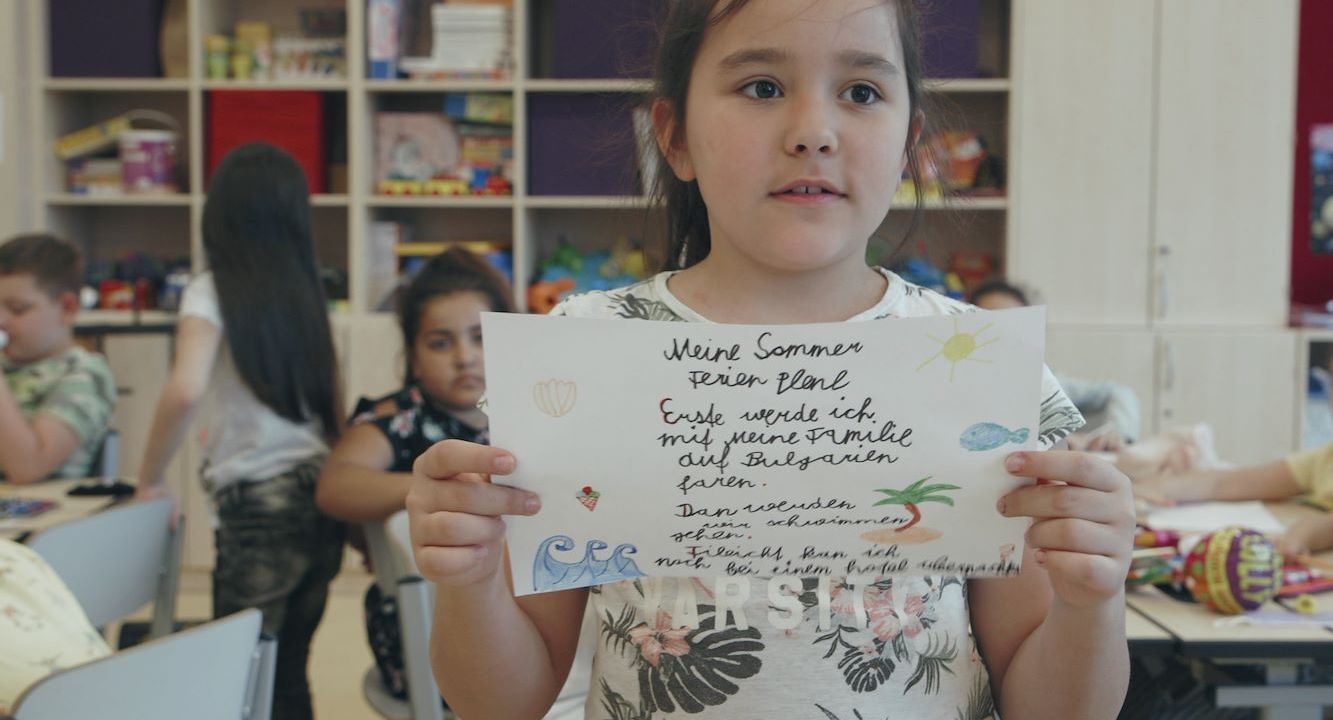 Meine Sommer
Ferien Plenl
Erste werde ich
mit meine Familie
auf Bulgarien
faren.
Dan weuden
wir schwimmen
gehen.
Fileicht kan ich
noch bei einem hotel übernachte
VARSITY